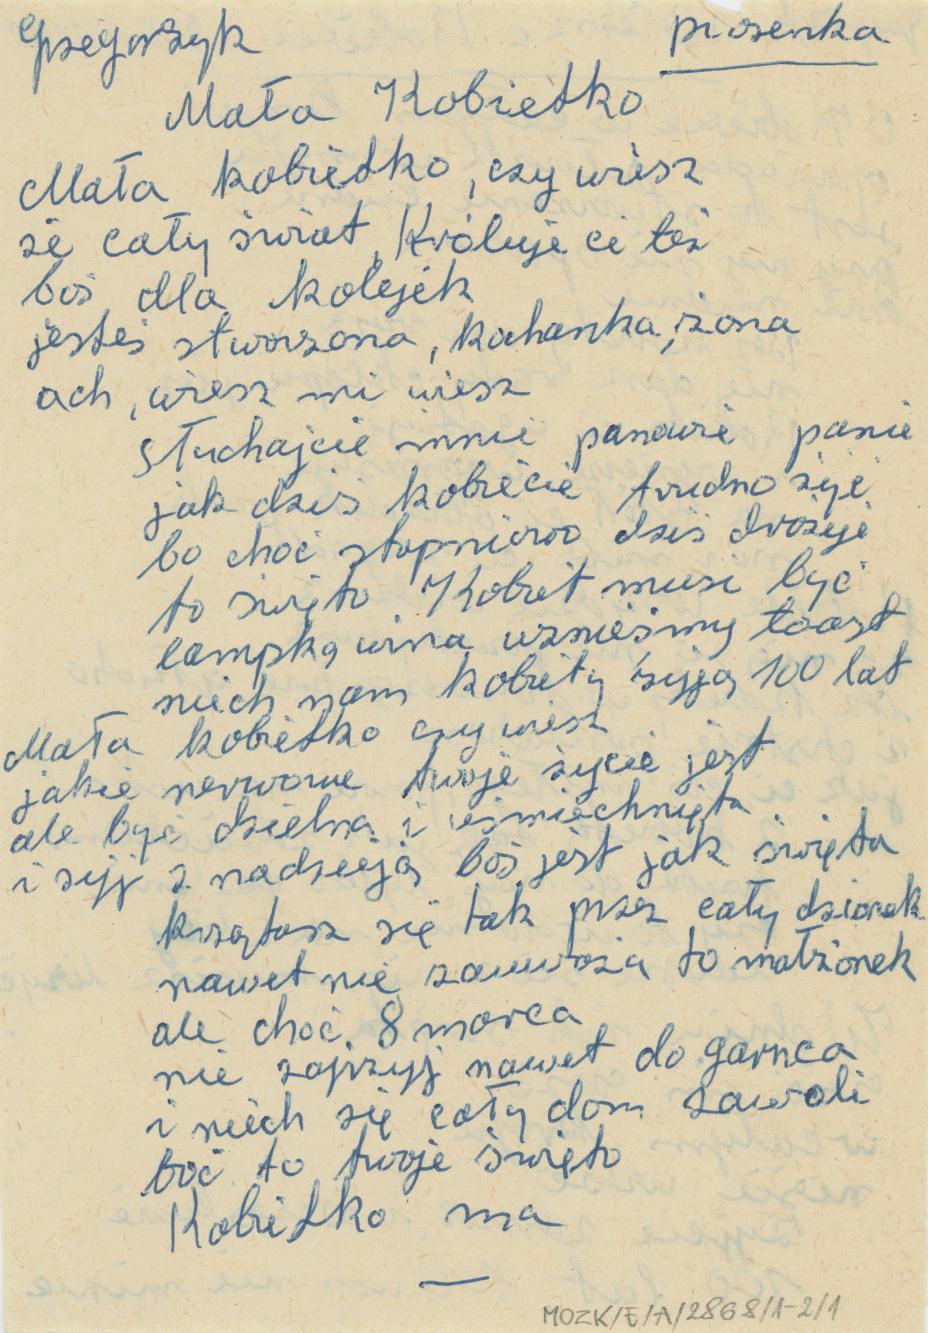 Grzegorzyk piosenka
Mała Kobietko
Mała kobietko, czy wiesz
że cały świat, Króluje ci też
boś dla kolejek
jesteś stworzona, kochanka, żona
ach, wiesz mi wiesz
słuchajcie mnie panowie panie
jak dziś kobiecie trudno żyć
bo choć stopniowo dziś drożyje
to święto Kobiet musi być
lampką wina wznieśmy toast
niech nam kobiety żyją 100 lat
Mała kobietko czy wiesz
jakie nerwowe twoje życie jest
ale być dzielną i uśmiechniętą
i żyj z nadzieją boś jest jak święta
krzątasz się tak przez cały dzionek
nawet nie zauważa to małżonek
ale choć 8 marca
nie zajrzyj nawet do garnca
i niech się cały dom zawali
boć to twoje święto
Kobietko ma
—
MOZK/E/A/2868/1-2/1